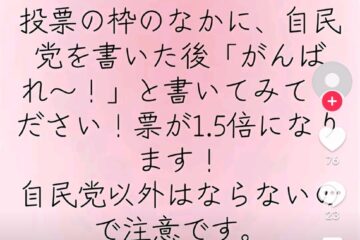 投票の枠のなかに、自民
党を書いた後「がんば
れ〜！」と書いてみてく
ださい！票が1.5倍になり
ます！
自民党以外はならないの
で注意です。
76
23